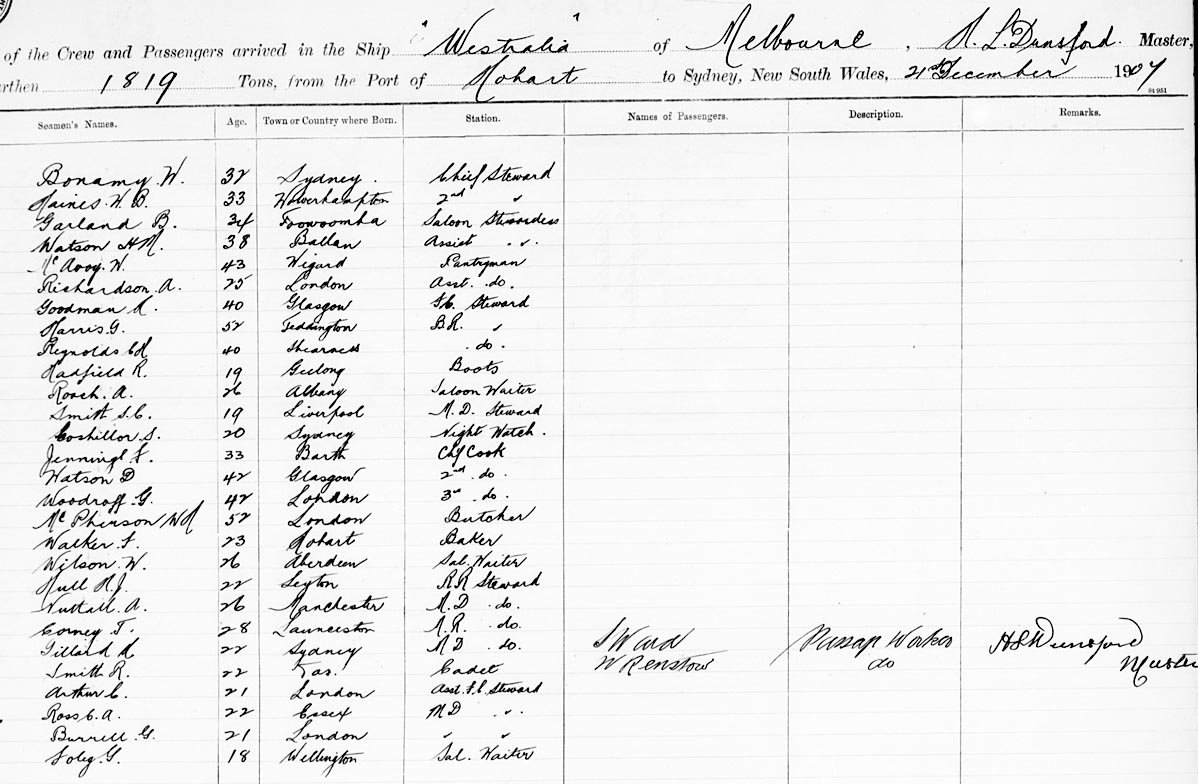 of the Crew and Passengers arrived in the Ship "Westralia" of Melbourne, Dunsford Master,
1819 Tons, from the Port of Hobart to Sydney, New South Wales, 21st December 1907
St 951
Seamen's Names. Age. Town or Country where Born. Station. Names of Passengers. Description. Remarks.
Bonamy W. 32 Sydney. Chief Steward
Haines W. B. 33 Wolverhampton 2nd "
Garland B. 34 Toowoomba Saloon Stewardess
Watson H.M. 38 Ballan Assist " "
McAvoy. W. 43 Pantryman
Richardson A. 25 London Asst. do.
Goodman 40 Glasgow F.C. Steward
Harris. G. 52 Teddington B.R. "
Reynolds 40 Sheerness do.
Hadfield R. 19 Geelong Boots
Roach. A. 26 Albany Saloon Waiter
Smith S.C. 19 Liverpool M.D. Steward
S. 20 Sydney Night Watch.
33 Barth Chf Cook
Watson D 42 Glasgow 2nd do.
Woodroff. G. 42 London 3rd do.
McPherson 52 London Butcher
Walker F. 23 Hobart Baker
Wilson. W. 26 Aberdeen Sal. Waiter
Hull H.J. 22 Leyton R.R Steward
Nuttall. A. 26 Manchester M.D do.
Corney T. 28 Launceston do.
Gillard 22 Sydney M D do. J Ward Passage Worker Dunsford
Smith R. 22 Tas. Cadet W Renstow do Master
Arthur C. 21 London Asst. F.C. Steward
Ross C. A. 22 Essex M D " "
Burrell G. 21 London " "
G. 18 Wellington Sal. Waiter